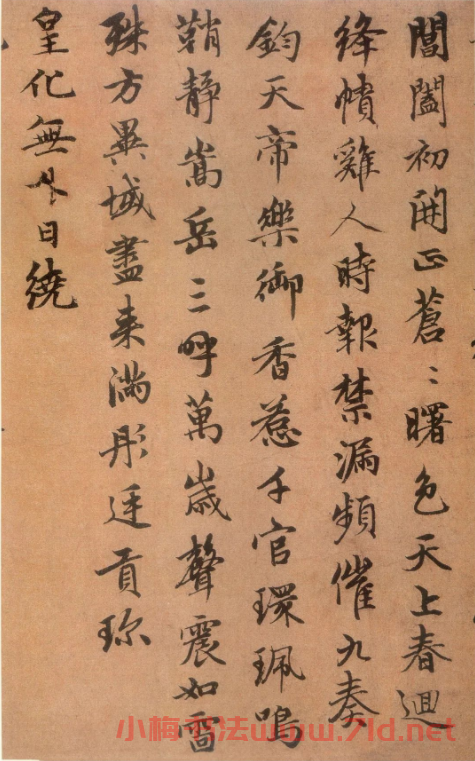 閶闔初開正蒼〻曙色天上春迴
絳幘雞人時報禁漏頻催九奏
鈞天帝樂御香惹千官環珮鳴
鞘靜嵩岳三呼萬歲聲震如雷
殊方異域盡来滿彤廷貢珎
皇化無外日繞
小梅书法www.7ld.net